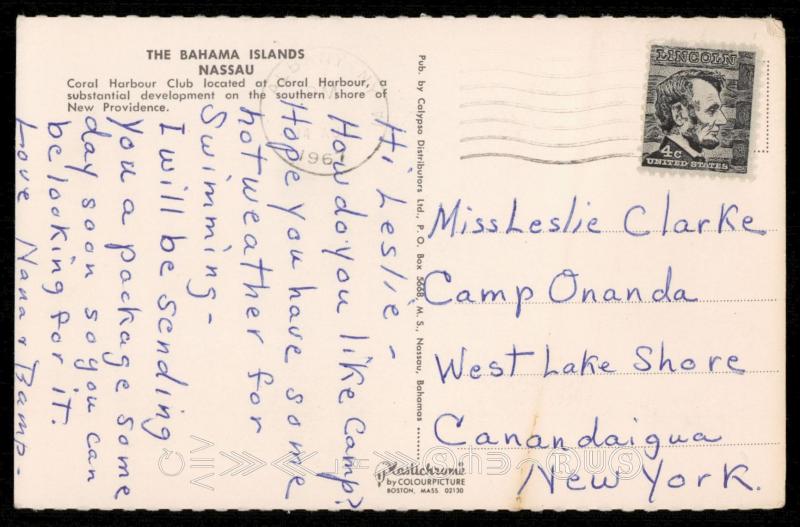 THE BAHAMA ISLANDS
NASSAU
Coral Harbour Club located at Coral Harbour, a
substantial development on the southern shore of
New Providence.
Hi Leslie -
How do you like Camp?
Hope you have some
hot weather for
Swimming -
I will be sending
you a package some
day soon so you can
be looking for it.
Love Nana & Bamp -
Pub. by Calypso Distributors Ltd., P. O. Box 5668 M. S., Nassau, Bahamas
Plastichrome
by COLOURPICTURE
BOSTON, MASS. 02130
196
LINCOLN
4c
UNITED STATES
Miss Leslie Clarke
Camp Onanda
West Lake Shore
Canandaigua
New York.